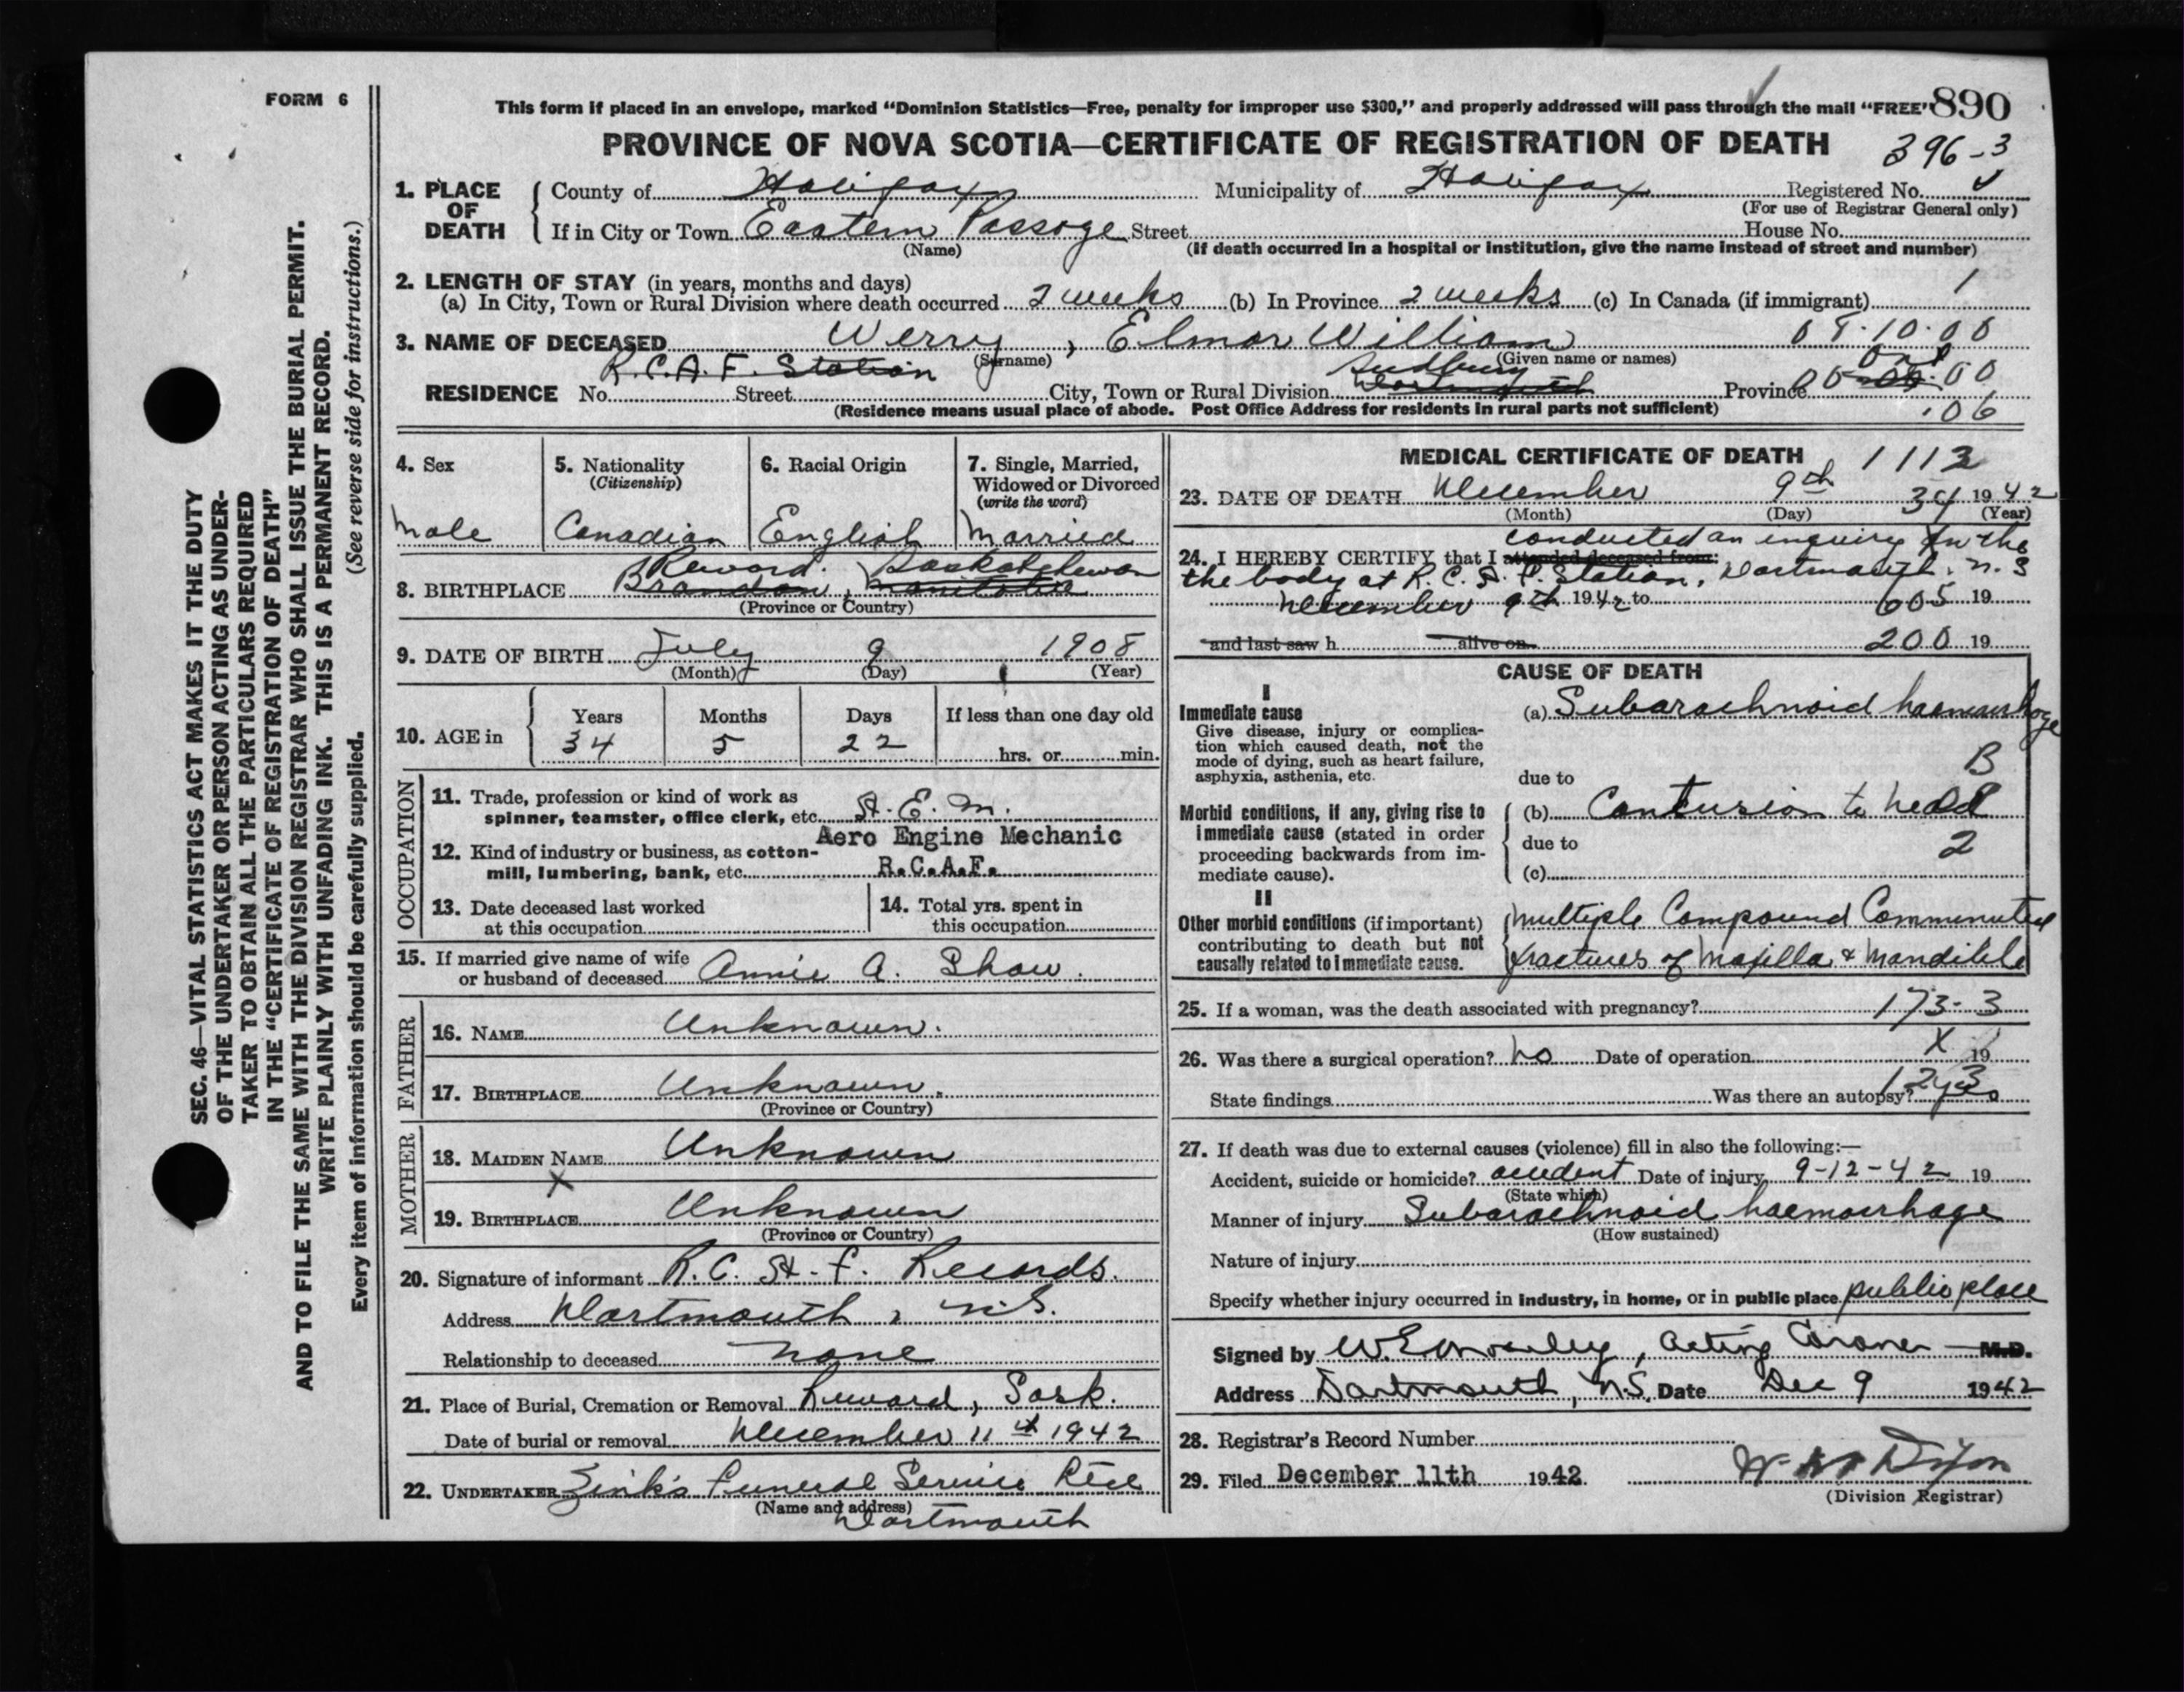 FORM 6
This form if placed in an envelope, marked "Dominion Statistics—Free, penalty for improper use $300," and properly addressed will pass through the mail "FREE" 890
PROVINCE OF NOVA SCOTIA—CERTIFICATE OF REGISTRATION OF DEATH 396-3
1. PLACE OF DEATH County of Halifax Municipality of Halifax Registered No.
(For use of Registrar General only)
If in City or Town Eastern Passage Street House No.
(Name) (If death occurred in a hospital or institution, give the name instead of street and number)
2. LENGTH OF STAY (in years, months and days)
(a) In City, Town or Rural Division where death occurred 2 weeks (b) In Province 2 weeks (c) In Canada (if immigrant) 1
3. NAME OF DECEASED Werry, Elmor William 08.10.00
(Surname) (Given name or names)
R.C.A.F. Station Sudbury Ont
RESIDENCE No. Street City, Town or Rural Division Dartmouth Province 00 00
(Residence means usual place of abode. Post Office Address for residents in rural parts not sufficient) .06
4. Sex 5. Nationality (Citizenship) 6. Racial Origin 7. Single, Married, Widowed or Divorced (write the word)
Male Canadian English Married
Reward. Saskatchewan
8. BIRTHPLACE Brandon, Manitoba
(Province or Country)
9. DATE OF BIRTH July 9 1908
(Month) (Day) (Year)
10. AGE in Years Months Days If less than one day old
34 5 22 hrs. or min.
OCCUPATION
11. Trade, profession or kind of work as
spinner, teamster, office clerk, etc. A.E.M.
Aero Engine Mechanic
12. Kind of industry or business, as cotton-
mill, lumbering, bank, etc. R.C.A.F.
13. Date deceased last worked
at this occupation
14. Total yrs. spent in
this occupation
15. If married give name of wife
or husband of deceased Annie A. Shaw.
FATHER
16. NAME Unknown.
17. BIRTHPLACE Unknown.
(Province or Country)
MOTHER
18. MAIDEN NAME Unknown
X
19. BIRTHPLACE Unknown
(Province or Country)
20. Signature of informant R.C.A.F. Records.
Address Dartmouth, N.S.
Relationship to deceased None
21. Place of Burial, Cremation or Removal Reward, Sask.
Date of burial or removal December 11th 1942
22. UNDERTAKER Zink's Funeral Service
(Name and address)
Dartmouth
MEDICAL CERTIFICATE OF DEATH 1112
23. DATE OF DEATH December 9th 34 1942
(Month) (Day) (Year)
conducted an enquiry in the
24. I HEREBY CERTIFY that I attended deceased from:
the body at R.C.A.F. Station, Dartmouth, N.S
December 9th 1942 to 605 19
and last saw h alive on 200 19
CAUSE OF DEATH
I
Immediate cause
Give disease, injury or complica-
tion which caused death, not the
mode of dying, such as heart failure,
asphyxia, asthenia, etc.
(a) Subarachnoid haemorrhage
B
due to
Morbid conditions, if any, giving rise to
immediate cause (stated in order
proceeding backwards from im-
mediate cause).
(b) Contusion to head
due to 2
(c)
II
Other morbid conditions (if important)
contributing to death but not
causally related to immediate cause.
Multiple Compound Comminuted
fractures of Maxilla & Mandible
25. If a woman, was the death associated with pregnancy? 173-3
26. Was there a surgical operation? No Date of operation X 19
State findings Was there an autopsy? Yes
27. If death was due to external causes (violence) fill in also the following:—
Accident, suicide or homicide? accident Date of injury 9-12-42 19
(State which)
Manner of injury Subarachnoid haemorrhage
(How sustained)
Nature of injury
Specify whether injury occurred in industry, in home, or in public place public place
Signed by Acting Coroner M.D.
Address Dartmouth, N.S. Date Dec 9 1942
28. Registrar's Record Number
29. Filed December 11th 1942. Dixon
(Division Registrar)
SEC. 46—VITAL STATISTICS ACT MAKES IT THE DUTY
OF THE UNDERTAKER OR PERSON ACTING AS UNDER-
TAKER TO OBTAIN ALL THE PARTICULARS REQUIRED
IN THE "CERTIFICATE OF REGISTRATION OF DEATH"
AND TO FILE THE SAME WITH THE DIVISION REGISTRAR WHO SHALL ISSUE THE BURIAL PERMIT.
WRITE PLAINLY WITH UNFADING INK. THIS IS A PERMANENT RECORD.
Every item of information should be carefully supplied. (See reverse side for instructions.)